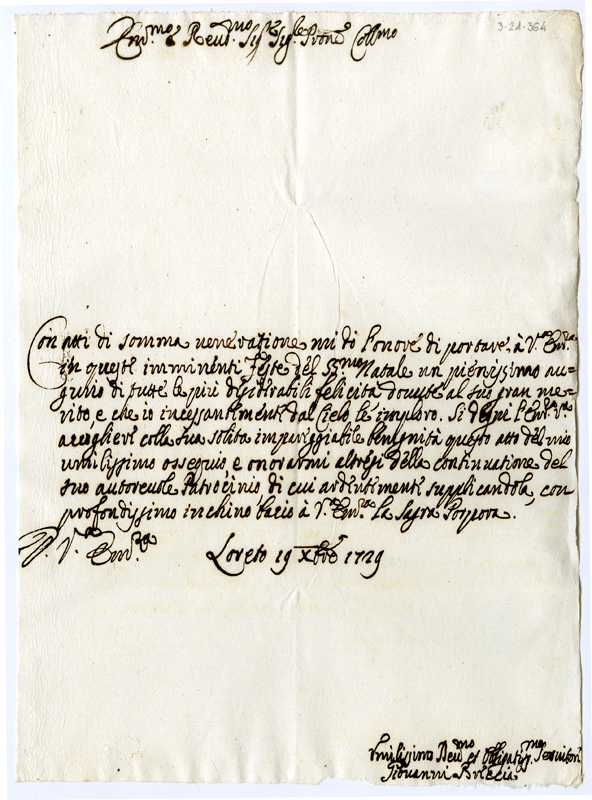 3-21-364
Em.mo e Reud.mo Sig.re Sig.re Prone Coll.mo
Con atti di somma uenerazione mi dò l'onore di portare à V.ra Em.za
in queste imminenti Feste del SS.mo Natale un pienissimo au-
gurio di tutte le più desiderabili felicità douute al suo gran me-
rito, e che io incessantemente dal Cielo le imploro. Si degni l'Em.za V.ra
accogliere colla sua solita impareggiabile benignità questo atto del mio
umilissimo ossequio, e onorarmi altresì della continuazione del
suo autoreuole Patrocinio, di cui ardentemente supplicandola, con
profondissimo inchino bacio à V.ra Em.za la Sagra Porpora.
D. V.ra Em.za
Loreto 19 Xbre 1729
Vmilissimo Deu.mo et Obligatis.mo Seruitore
Giovanni